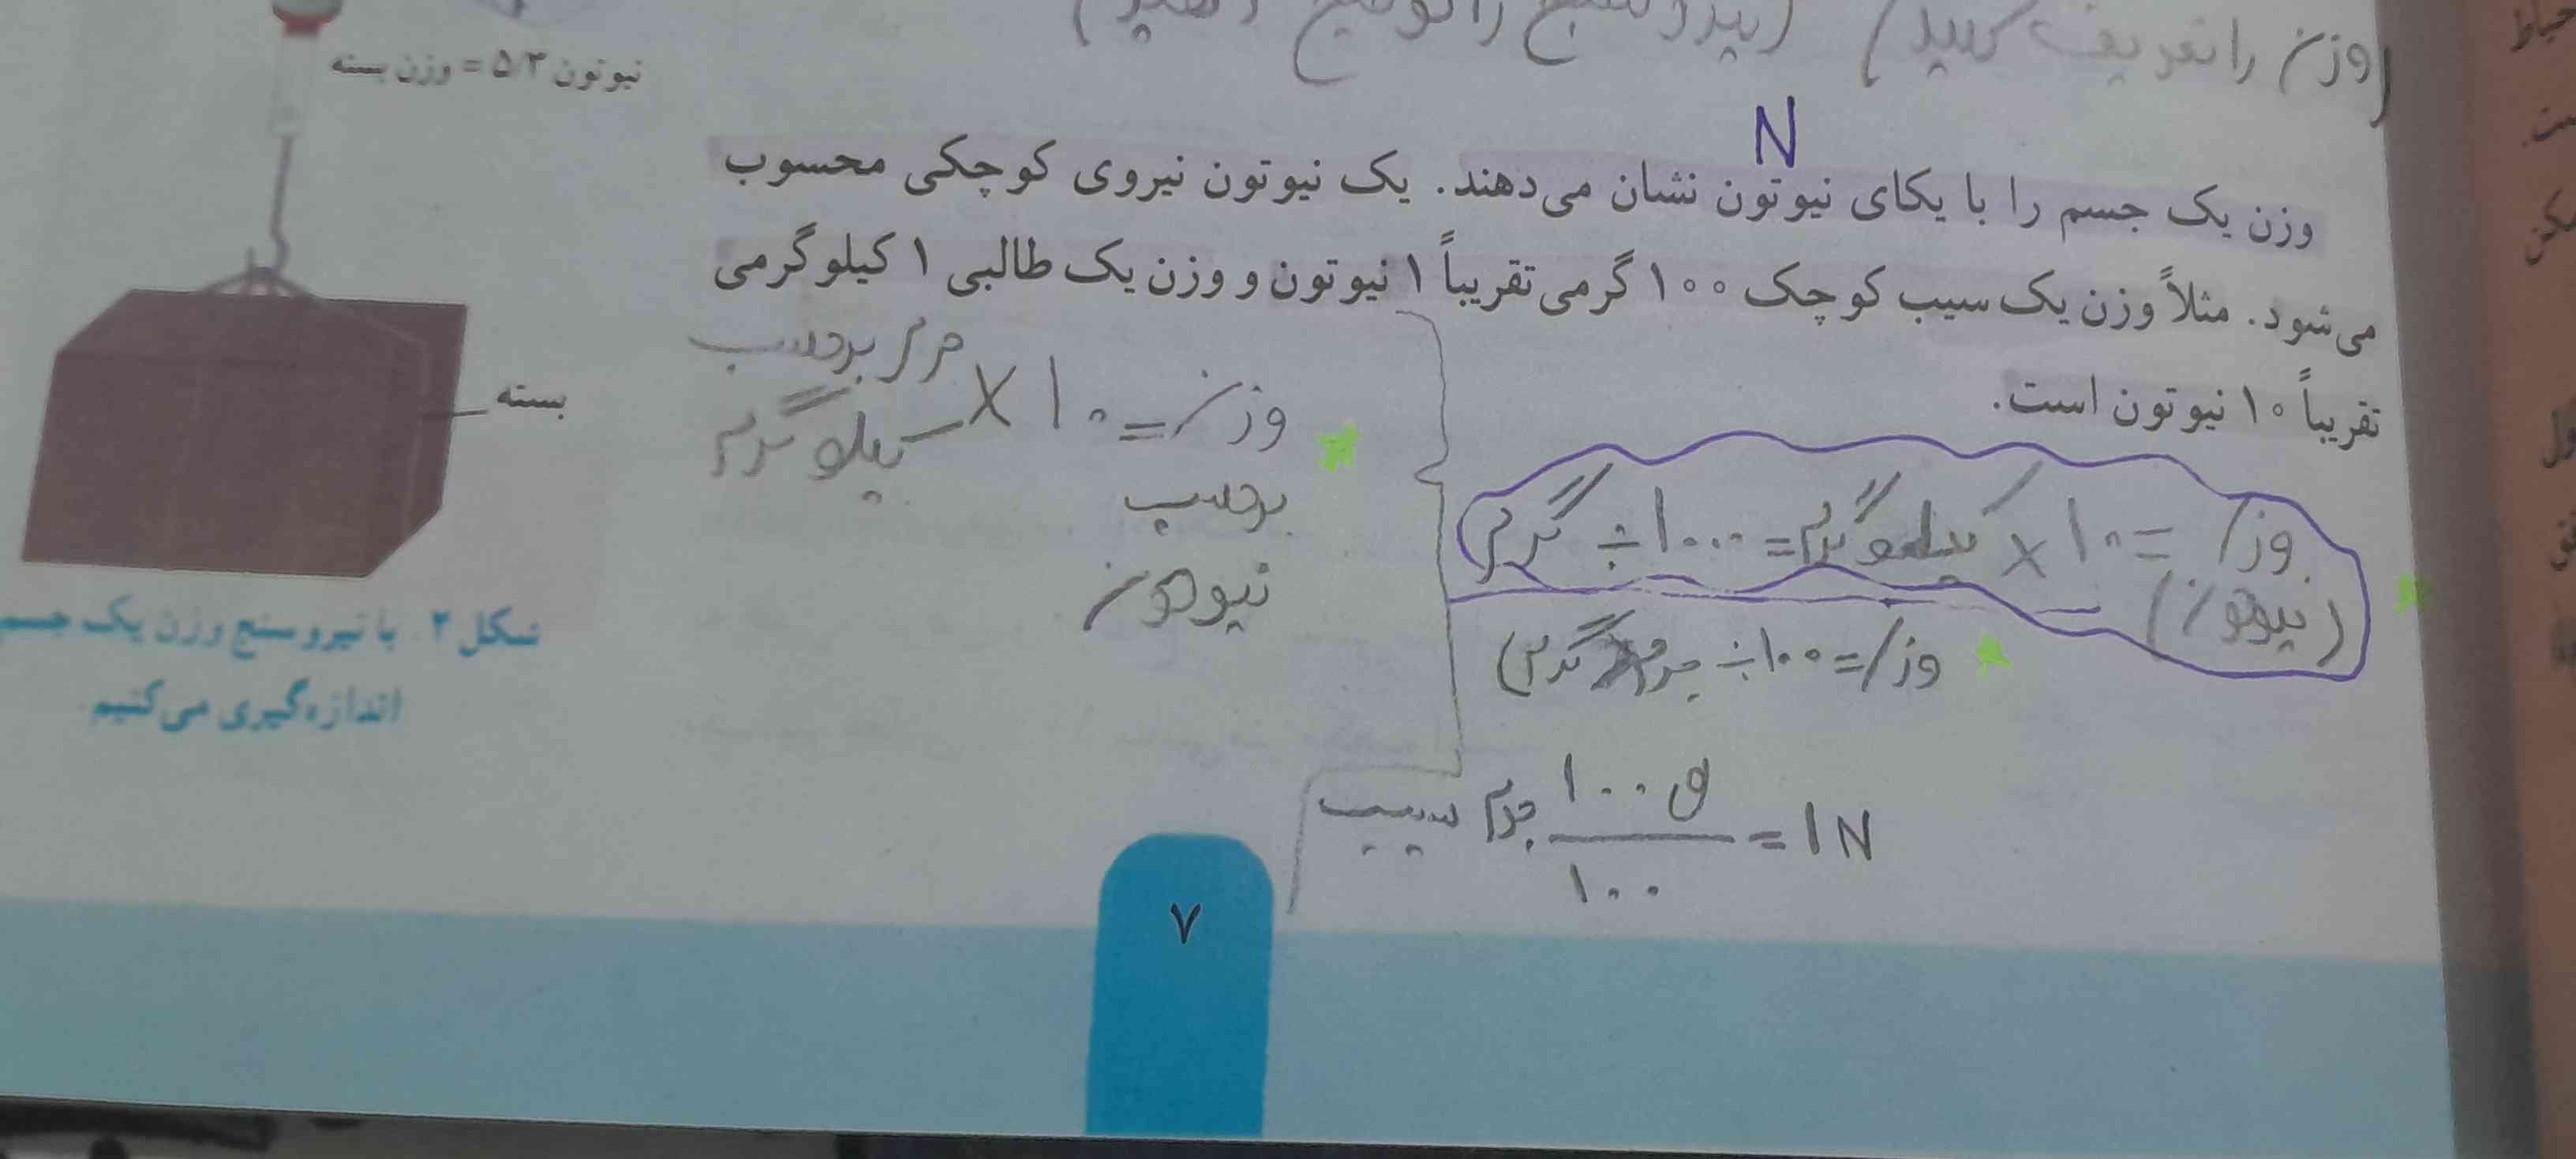 (وزن را تعریف کنید)
نیوتون ۵/۳ = وزن بسته
N
وزن یک جسم را با یکای نیوتون نشان می‌دهند. یک نیوتون نیروی کوچکی محسوب
می‌شود. مثلاً وزن یک سیب کوچک ۱۰۰ گرمی تقریباً ۱ نیوتون و وزن یک طالبی ۱ کیلوگرمی
تقریباً ۱۰ نیوتون است.
وزن = ۱۰ × جرم برحسب کیلوگرم
برحسب
نیوتون
وزن = ۱۰ × کیلوگرم = ۱۰۰۰ ÷ گرم
(نیوتون)
وزن = ۱۰۰ ÷ جرم (گرم)
جرم سیب ۱۰۰ g / ۱۰۰ = ۱ N
بسته
شکل ۲ با نیروسنج وزن یک جسم
اندازه‌گیری می‌کنیم
۷